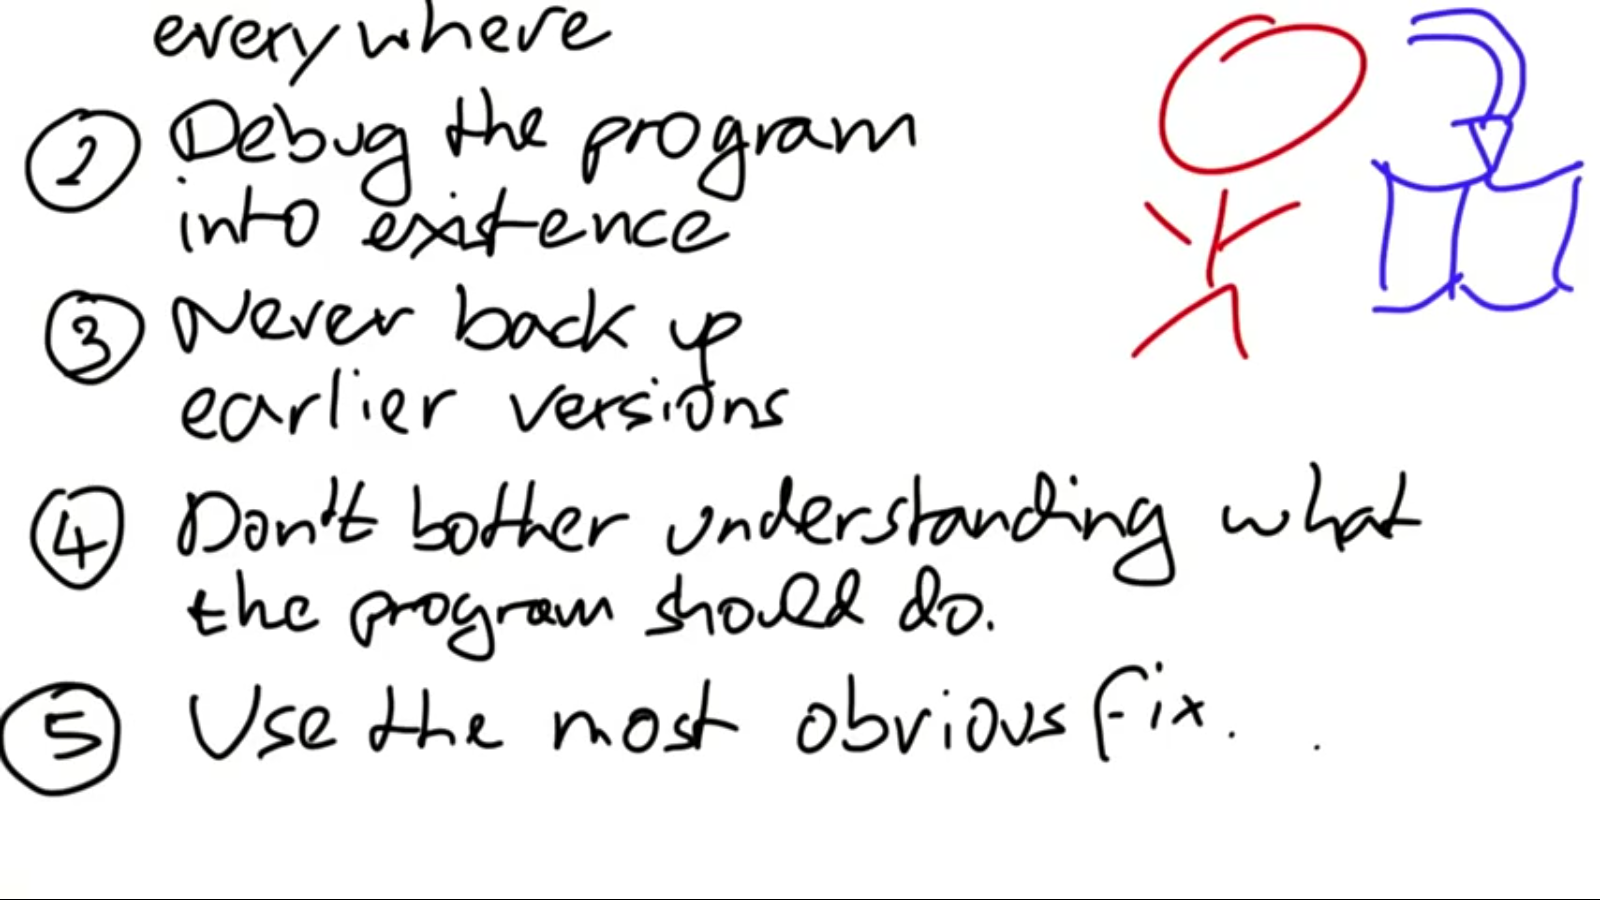 everywhere
2 Debug the program
into existence
3 Never back up
earlier versions
4 Don't bother understanding what
the program should do.
5 Use the most obvious fix.